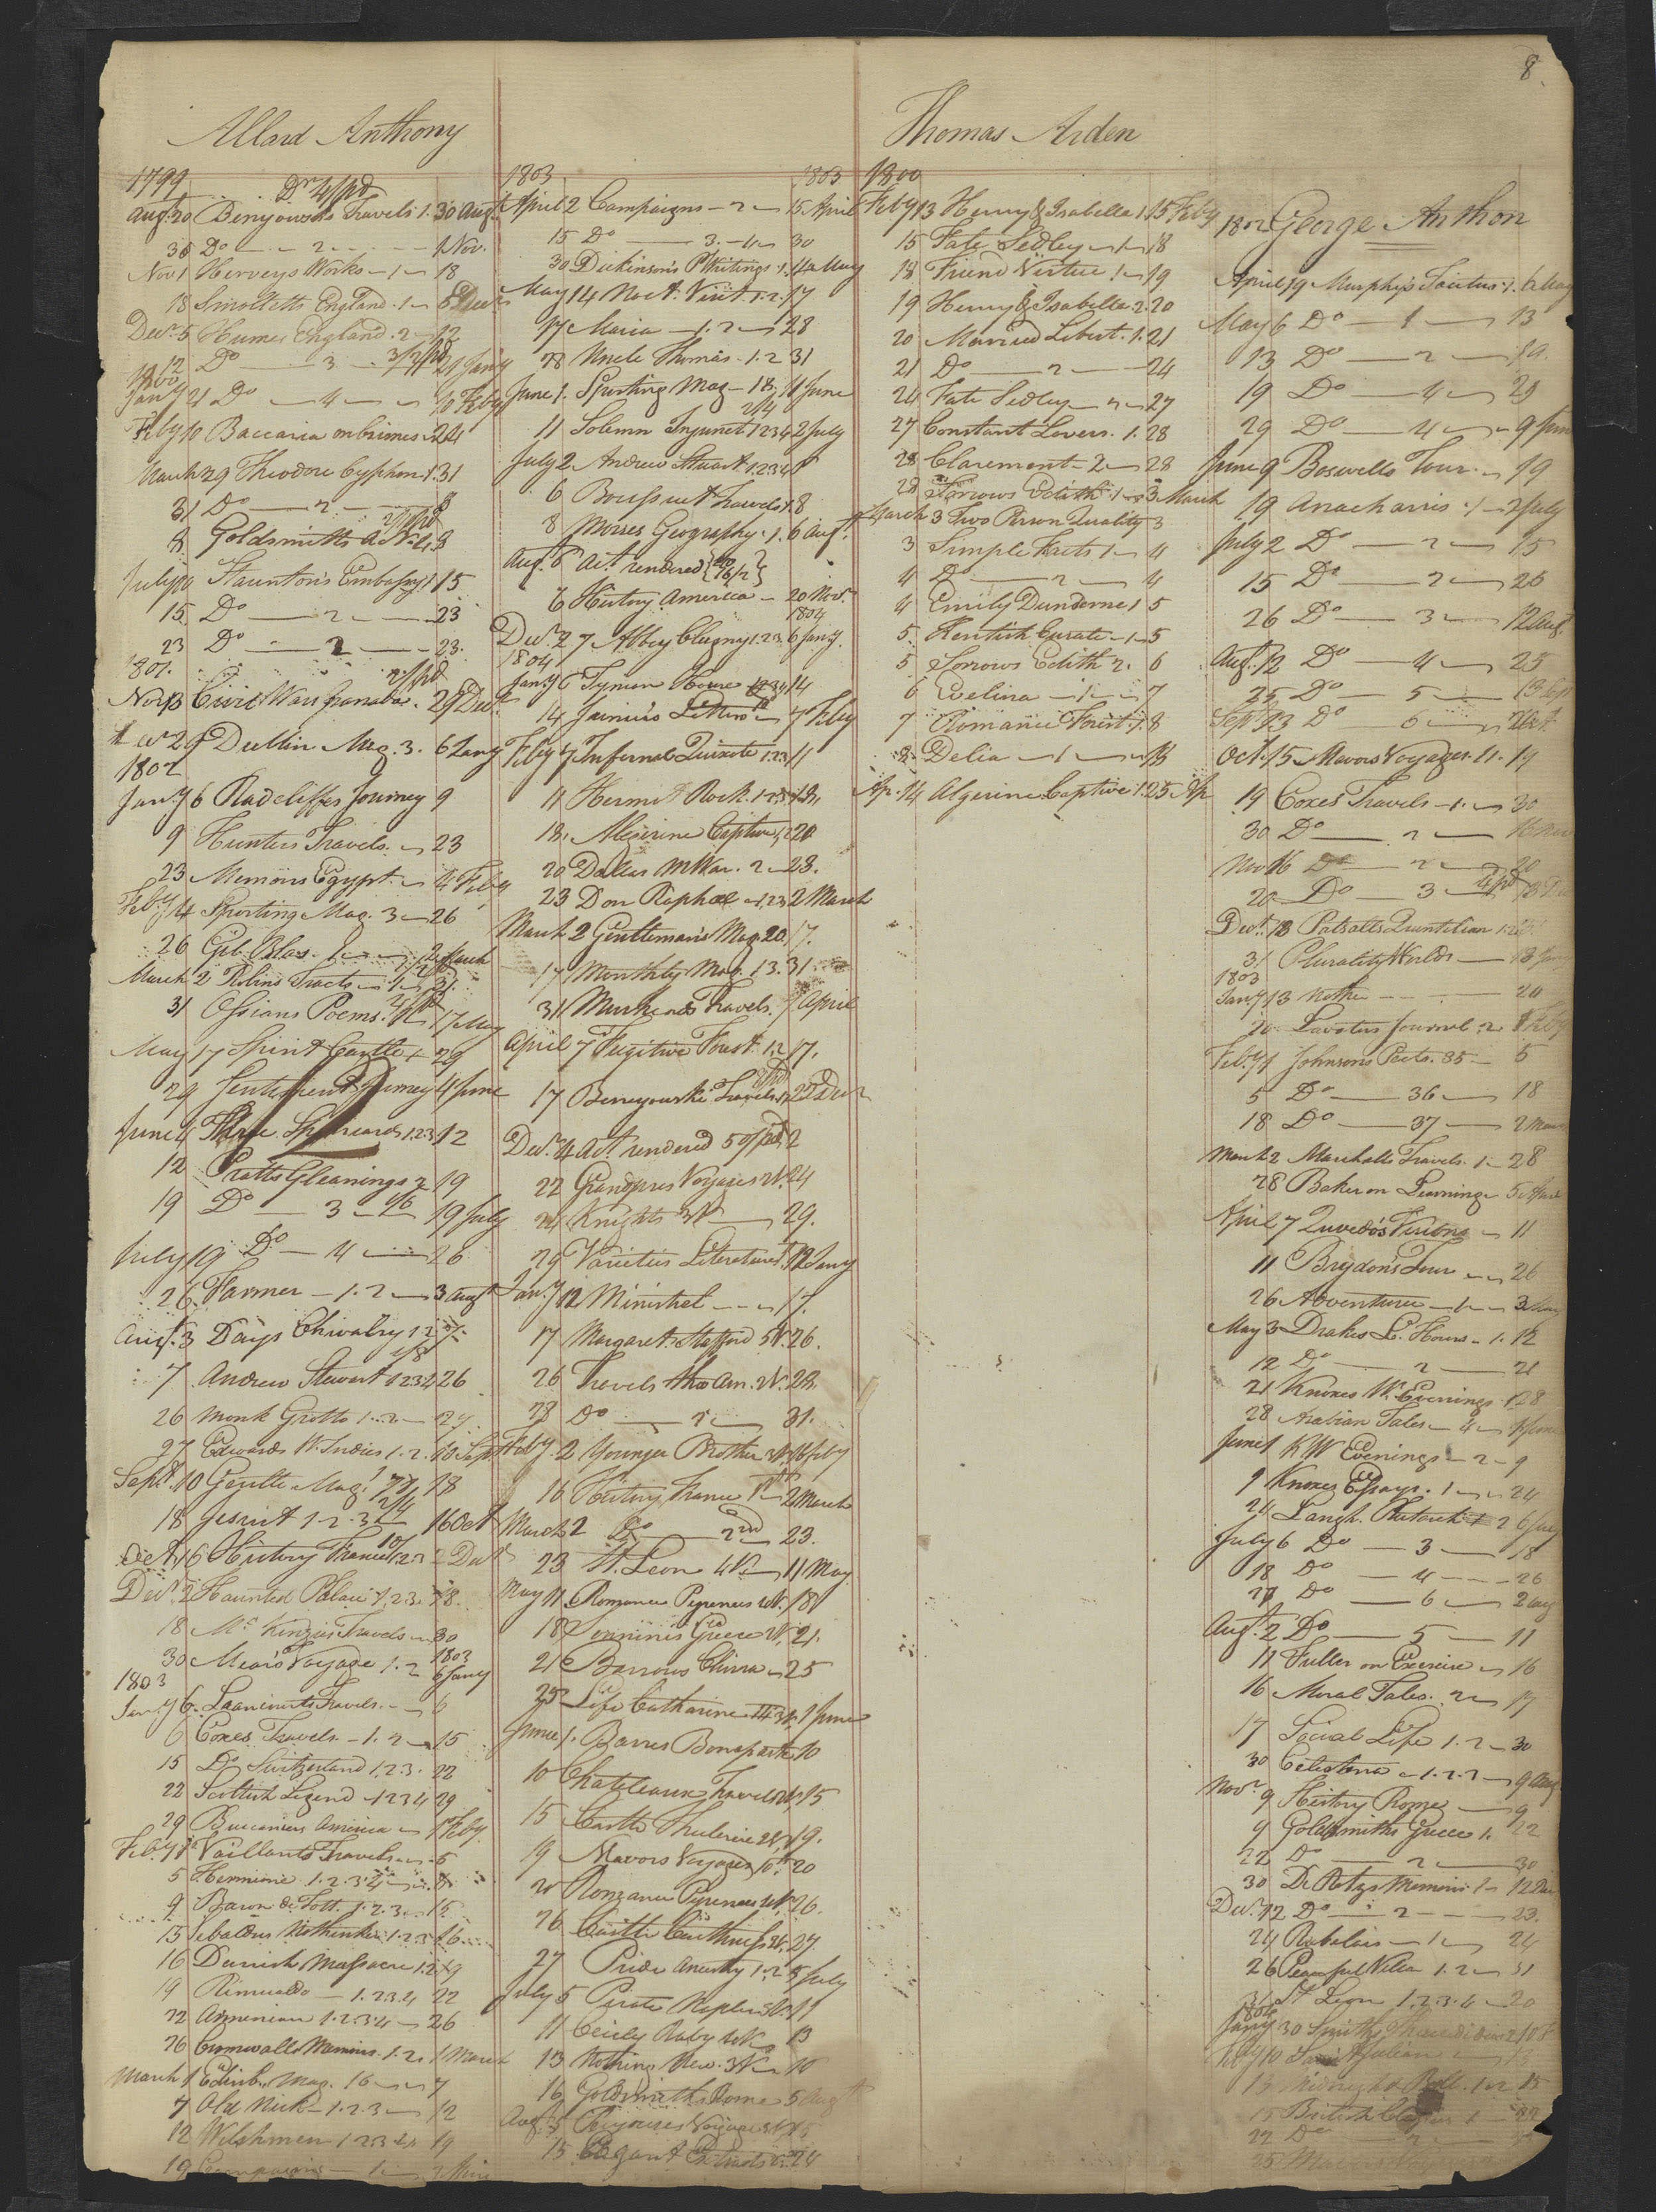 8.
Allard Anthony
1799
Dr 4/ pd
Augt 20 Benyowskis Travels 1. 30 Augt
30 Do — 2 — 1 Nov.
Nov 1 Herveys Works — 1 — 18
18 Smolletts England . 1 — 5 Decr
Decr 5 Humes England . 2 — 12
12 Do — 3 — 3/2 pd 21 Jany
1800
Jany 21 Do — 4 — 10 Feby
Feby 10 Baccaria on Crimes 24
March 29 Theodore Cyphon 1. 31
31 Do — 2 — 8
8 Goldsmiths A. N. 4. 8
July 10 Stauntons Embassy 1 15
15 Do — 2 — 23
23 Do — 2 — 23.
1801.
Nov 13 Civil Wars Granada . 29 Decr
Decr 29 Dublin Mag. 3. 6 Jany
1802
Jany 6 Radcliffes Journey 9
9 Hunters Travels . 23
23 Memoirs Egypt. 4 Feby
Feby 4 Sporting Mag. 3 — 26
26 Gil Blas . 1 — 2 March
March 2 Robins Tracts — 1 — 31.
31 Ossians Poems. 17 May
May 17 Spirit Castle 1 29
29 Sentiment Journey 4 June
June 4 Three Spaniards 1.2.3 12
12 Pratts Gleanings 2 19
19 Do — 3 — 1/6 19 July
July 19 Do — 4 — 26
26 Farmer — 1. 2 — 3 Augt
Augt. 3 Days Chivalry 1 2 7.
7 Andrew Stewart 1 2 3 4 26
26 Monk Grotto 1 . 2 — 27.
27 Edwards W. Indies 1. 2. 10 Sept
Sept. 10 Gentle Mag. 18
18 Jesuit 1 . 2 . 3 2/4 16 Oct
Oct. 16 History France 1 2 3 2 Decr
Decr 2 Haunted Palace 1. 2. 3. 18.
18 Mc Kinzies Travels — 30
30 Mears Voyage 1. 2 1803 6 Jany
1803
Jany 6. Laancourts Travels. — 6
6 Coxes Travels — 1. 2 — 15
15 Do Switzerland 1. 2. 3. 22
22 Scottish Legend — 1 2 3 4 29
29 Buccaniers America — 1 Feby.
Feby 1 Vaillants Travels — 5
5 Hermione 1. 2. 3. 4 —
9 Baron de Tott. 1. 2. 3. 15
15 Sebaldus Nothenker 1. 2. 3 16
16 Danish Massacre 1. 2 19
19 Rimualdo — 1. 2. 3. 4 22
22 Armenian 1. 2. 3. 4 — 26
26 Cumwalls Memoirs. 1. 2. 1 March
March 1 Edinb. Mag. 16 — 7
7 Old Nick — 1. 2. 3 — 12
12 Welshmen 1 2 3 4 19
19 Campaigns — 1
1803 1803
April 2 Campaigns — 2 — 15 April
15 Do — 3. 4 30
30 Dickinsons P Writings . 1. 14 May
May 14 Noct. Visit 1. 2. 17
17 Maria — 1. 2 — 28
28 Uncle Thomas . 1. 2 31
June 1. Sporting Mag — 18. 11 June
11 Solemn Injunct 1 2 3 4 2 July
July 2. Andrew Stuart 1. 2 3 4
6 Boussuet Travels 1. 8
8 Morses Geography . 1. 6 Augt.
Aug. 6 Act. rendered to 16/2
6 History America — 20 Nov.
1804
Decr 27 Abbey Clugny 1. 2 3. 6 Jany.
1804
Jany 6 Tynian House 14
14 Juinius Letters 7 Feby
Feby 7 Infernal Quixote 1. 2 3 11
11 Hermit Rock . 1. 2 3 18.
18. Algerine Captive 1. 2 20
20 Dallas M War. 2 — 23.
23 Don Raphael — 1. 2 3 2 March
March 2 Gentlemans Mag. 20. 17.
17 Monthly Mag. 13. 31
31 Travels. 7 April
April 7 Fugitive Forest 1. 2 17.
17 Benyowskis Travels 22 Decr
Decr. 4 Act. rendered 50/ pd 2
22 Grandpres Voyages 2V. 24
24 Knights 3V — 29.
29 Varieties Literature 12 Jany
Jany 12 Minstrel — 17.
17 Margaret Stafford 5V. 26.
26 Travels thro Am. 2V. 28.
28 Do — 2 — 31.
Feby . 2 Younger Brother 3V. 16 feby
16 History France 1st — 2 March
March 2 Do — 2nd 23.
23 St. Leon 4V. — 11 May.
May 11. Romance Pyrenees 4V. 18
18 Greece 2V. 21.
21 Barrows China — 25
25 Life Catharine 3V. 1 June
June 1. Barres Bonaparte 10
10 Travels 15
15 Castle 19.
19 Mavors Voyages 10th 20
20 Romance Pyrenees 4V. 26.
26 Castle Caithness 2V. 27.
27 Pride Ancestry 1. 2 5 July
July 5 Pirate Naples 3V. 11
11 Cicily Raby 4V. 13
13 Nothing New. 3V. 16
16 Goldsmiths Rome 5 Augt
Aug. 5 Voyages
15 Elegant Extracts 24
Thomas Arden
1800
Feby 13 Henry & Isabella 1 15 Feby
15 Fate Sedley — 1 — 18
18 Friend Virtue 1 — 19
19 Henry & Isabella . 2. 20
20 Married Libert. 1. 21
21 Do — 2 — 24
24 Fate Sedley — 2 — 27
27 Constant Lovers. 1. 28
28 Claremont . 2 — 28
28 Sorrows Edith . 1 — 3 March
March 3 Two Person Quality 3
3 Simple Facts 1 — 4
4 Do — 2 — 4
4 Emily Dundorne 1 5
5. Kentish Curate — 1 — 5
5 Sorrows Edith 2. 6
6 Evelina — 1 — 7
7 Romance Forest. 1. 8
8 Delia — 1 — 13
Ap. 14 Algerine Captive 1. 25 Ap
1802 George Anthon
April 19 Murphy's Tacitus . 1. 6 May
May 6 Do — 1 — 13
13 Do — 2 — 19.
19 Do — 4 — 29
29 Do — 4 — 9 June
June 9 Boswells Tour. — 19
19 Anacharsis . 1 — 2 July
July 2 Do — 2 — 15
15 Do — 2 — 26
26 Do — 3 — 12 Aug.
Aug. 12 Do — 4 — 25
25 Do — 5 — 13 Sep
Sept 13 Do — 6 — Oct.
Oct. 15 Mavors Voyages . 11. 19
19 Coxes Travels — 1. — 30
30 Do — 2 — 16 Nov
Nov 16 Do — 2 — 20
20 Do — 3 —
Decr. 18 Patsalls Quintilian 1. 2
31 Plurality Worlds — 13 Jany
1803
Jany 13 — 20
20 Lavaters Journal . 2. 1 Feby
Feby 1 Johnsons Poets. 35 — 5
5 Do — 36 — 18
18 Do — 37 — 2 March
March 2 Marshalls Travels . 1 — 28
28 Baker on Learning 5 April
April 7 Quevedo's Visions — 11
11 Brydons Tour — 26
26 Adventurer — 1 — 3 May
May 3 Drakes L. Hours — 1. 12
12 Do — 2 — 21
21 Knoxes W. Evenings . 1 28
28 Arabian Tales — 4 — 1 June
June 1 K W Evenings — 2 — 9
9 Knoxes Essays . 1 — 24
24 Langh. Plutarch 1 2 6 July
July 6 Do — 3 — 18
18 Do — 4 — 26
27 Do — 6 — 2 aug
Aug. 2 Do — 5 — 11
11 Fuller on Exercise — 16
16 Moral Tales. 2 — 17
17 Social Life 1. 2 — 30
30 Celestina — 1. 2. 3 — 9 Aug
Novr 9 History Rome — 9
9 Goldsmiths Greece 1. 22
22 Do — 2 — 30
30 De Retzs Memoirs 1 — 12 Dec
Decr. 12 Do — 2 — 23.
24 Rabelais — 1 — 24
26 Peaceful Villa 1. 2 — 31
31 St Leon 1. 2. 3. 4 — 20
1804
Jany 30 Smiths
Feby 10
15 Midnight Bell. 1. 2 15
15 British 1 — 22
22 Do
25